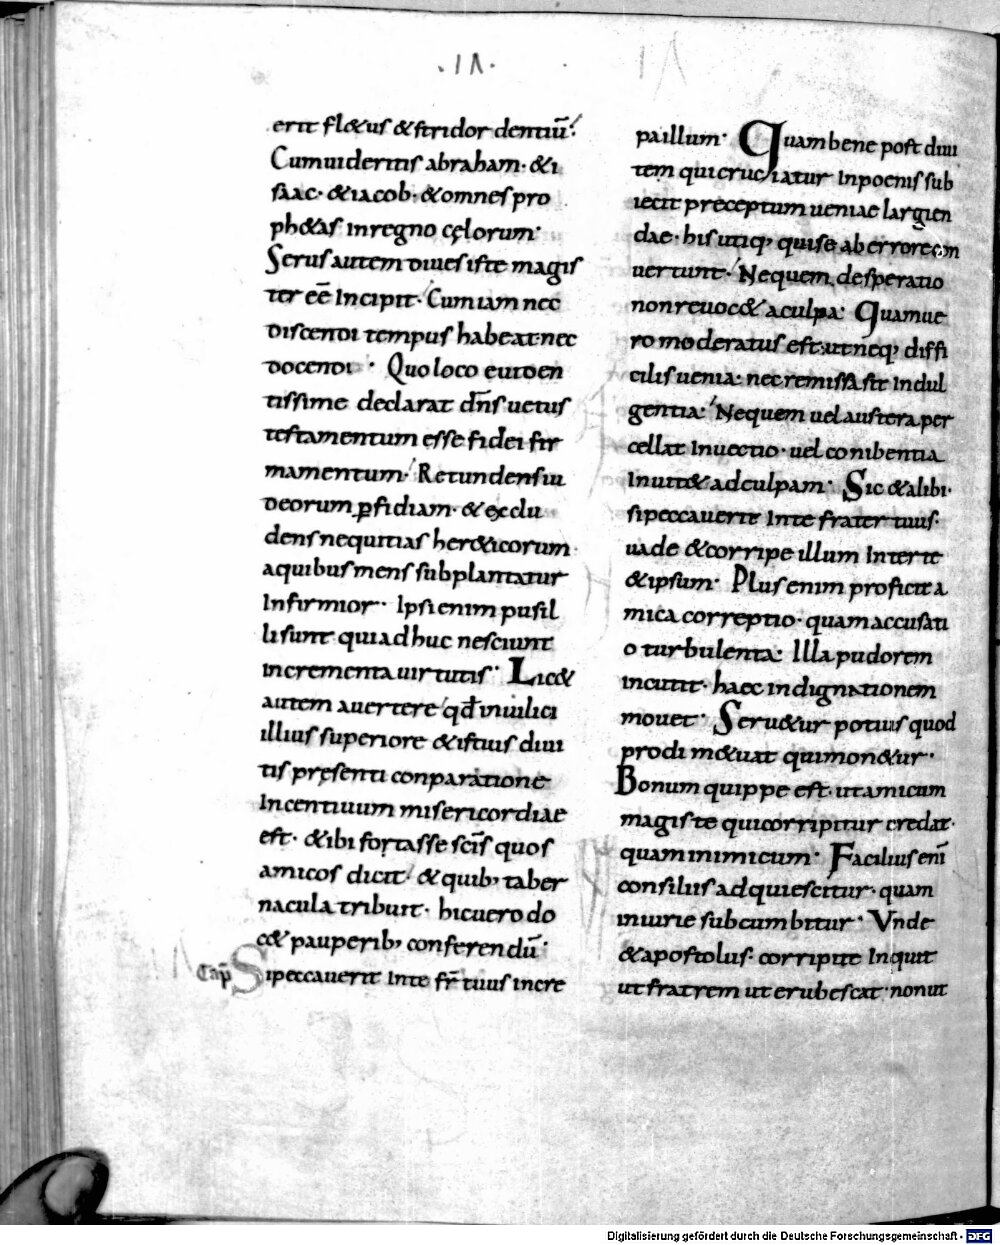 ·IΛ· IΛ
erit fl&us & stridor dentiū·
Cum uideritis abraham· & i
saac· & iacob· & omnes pro
ph&as In regno cęlorum·
Serus autem diues iste magis
ter eē Incipit· Cum iam nec
discendi tempus habeat· nec
docendi· Quo loco euiden
tissime declarat dn̄s uetus
testamentum esse fidei fir
mamentum· Retundens iu
deorum ꝑfidiam· & exclu
dens nequitias her&icorum
a quibus mens subplantatur
Infirmior· Ipsi enim pusil
li sunt qui adhuc nesciunt
incrementa uirtutis· Lic&
autem auertere qđ in uilici
illius superiore & istius diui
tis pręsenti conparatione
Incentiuum misericordiae
est· & ibi fortasse sc̄is quos
amicos dicit· & quib; taber
nacula tribuit· hic uero do
c& pauperib; conferendū·
Cap̄ Si peccauerit In te fr̄ tuus incre
pa illum· Quam bene post diui
tem qui cruciatur In poenis sub
iecit preceptum ueniae largien
dae· his utiq; qui se ab errore con
uertunt· Ne quem desperatio
non reuoc& a culpa· Quam ue
ro moderatus est· ut neq; diffi
cilis uenia· nec remissa sit Indul
gentia· Ne quem uel austera per
cellat Inuectio· uel conibentia
Inuit& ad culpam· Sic & alibi·
si peccauerit In te frater tuus·
uade & corripe illum Inter te
& ipsum· Plus enim proficit a
mica correptio· quam accusati
o turbulenta· Illa pudorem
incutit· haec indignationem
mouet· Seru&ur potius quod
prodi m&uat qui mon&ur·
Bonum quippe est· ut amicum
magis te qui corripitur credat·
quam inimicum· Facilius enī
consiliis adquiescitur· quam
iniurie subcumbitur· Vnde
& apostolus· corripite Inquit
ut fratrem ut erubescat· non ut
Digitalisierung gefördert durch die Deutsche Forschungsgemeinschaft - DFG